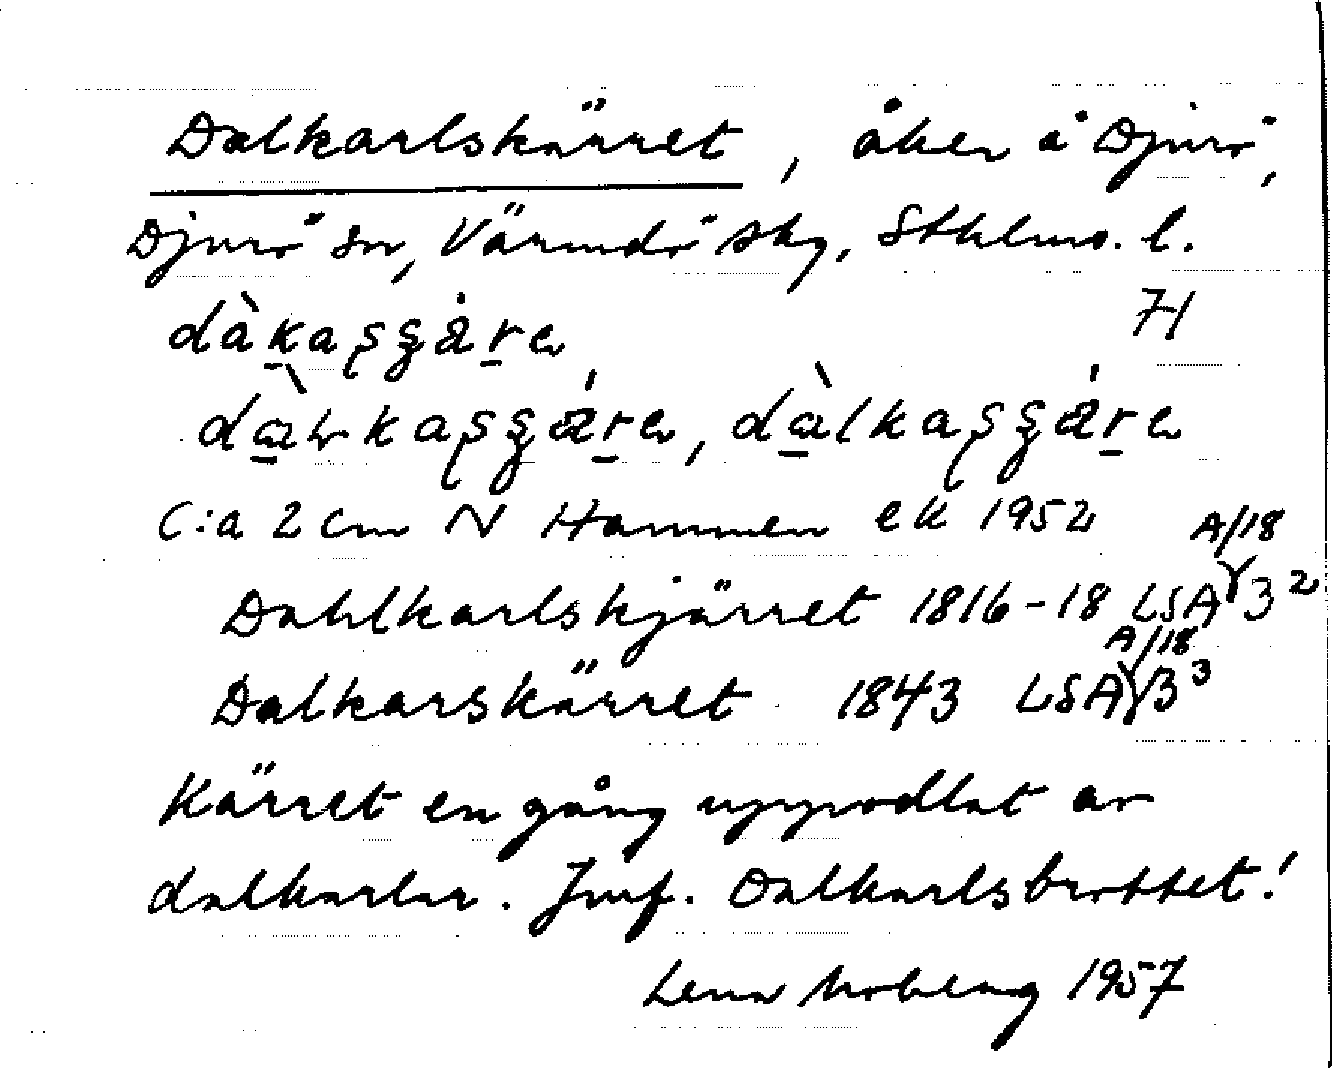 Dalkarlskärret, åker å Djurö,
Djurö sn, Värmdö skg, Sthlms. l.
71
C:a 2 cm N Hammen ek 1952
Dahlkarlskjärret 1816-18 LSA A/18 3²
Dalkarskärret 1843 LSA A/18 3³
Kärret en gång uppodlat av
dalkarlar. Jmf. Dalkarlsbrottet!
Lena Moberg 1957